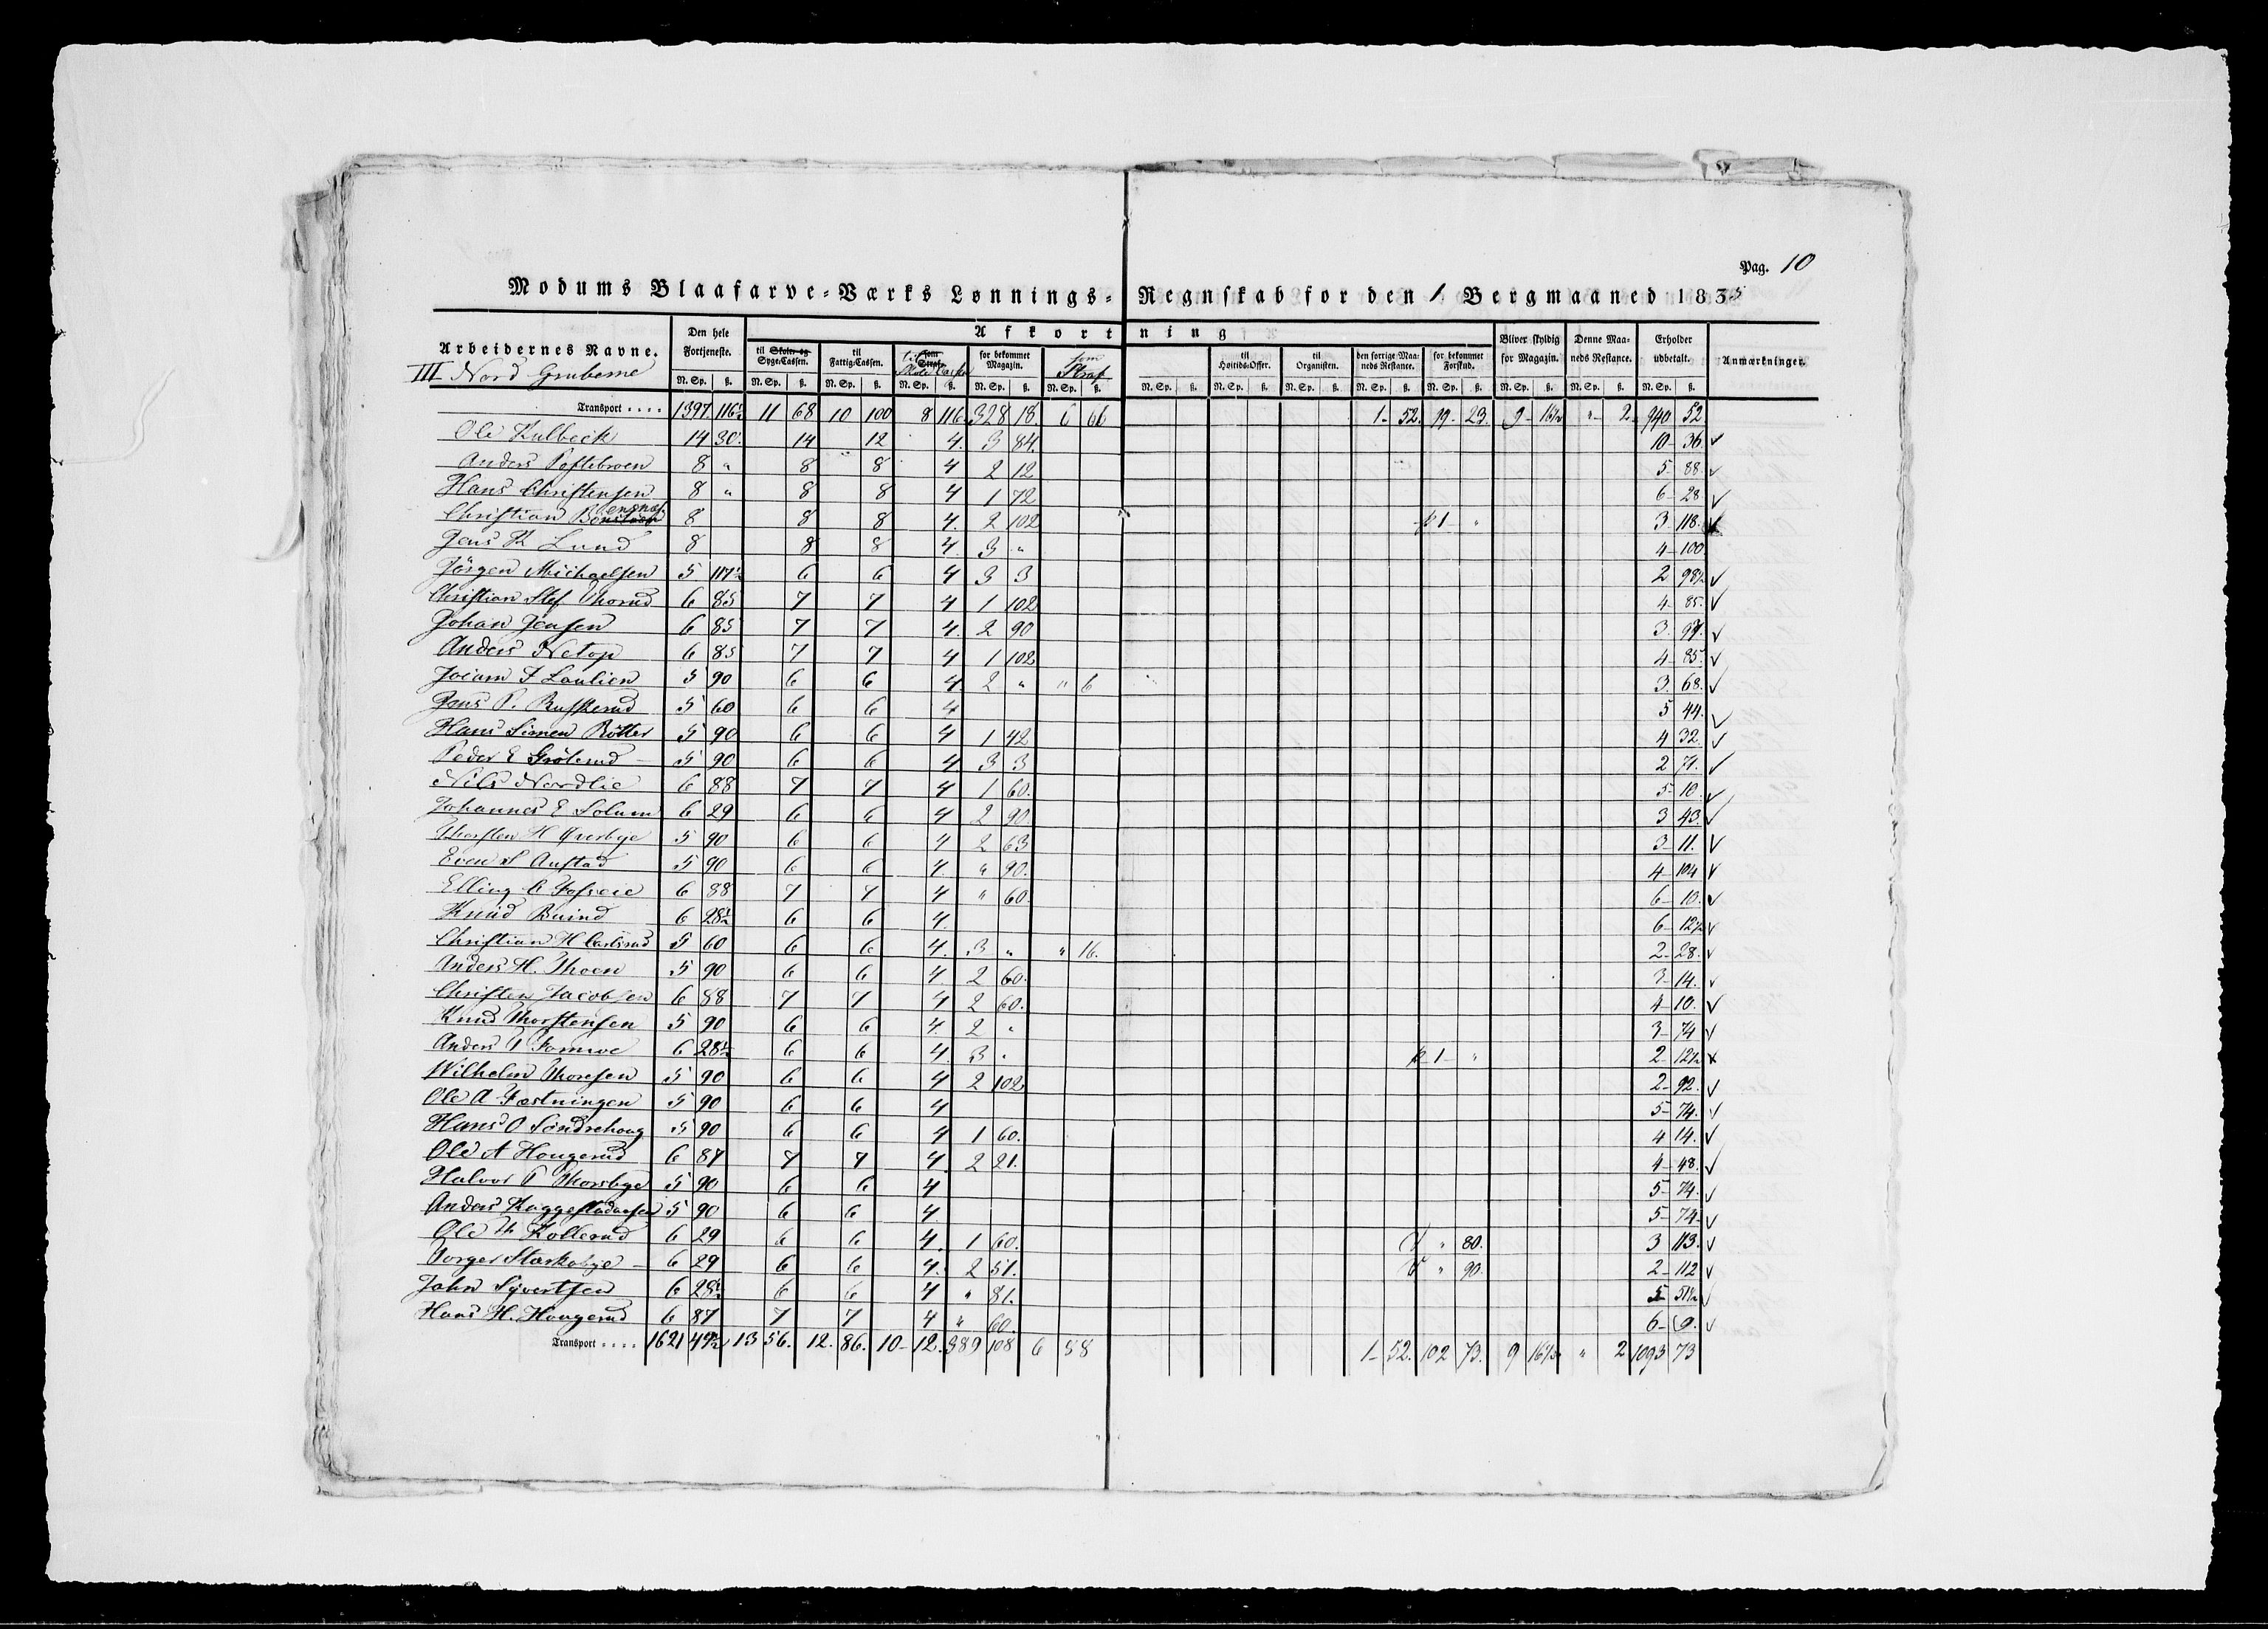 Pag. 10
Modums Blaafarve-Værks Lønnings- Regnskab for den 1. Bergmaaned 1835
Arbeidernes Navne. Den hele Fortjeneste. Afkortning Bliver skyldig for Magazin. Denne Maaneds Restance. Erholder udbetalt. Anmærkninger.
til Skole- og Syge-Cassen. til Fattig-Cassen. til som Straf. Skole Cassen for bekommet Magazin. som Straf til Høitids-Offer. til Organisten. den forrige Maaneds Restance. for bekommet Forskud.
III Nord Gruberne
N. Sp. ß. N. Sp. ß. N. Sp. ß. N. Sp. ß. N. Sp. ß. N. Sp. ß. N. Sp. ß. N. Sp. ß. N. Sp. ß. N. Sp. ß. N. Sp. ß. N. Sp. ß. N. Sp. ß. N. Sp. ß.
Transport . . . . 1397 116½ 11 68 10 100 8 116 328 18. 6 66 1- 52. 19- 23. 9- 16½ "- 2. 940 52
Ole Kulbeck 14 30. 14 12 4. 3 84. 10- 36 ✓
Anders 8 " 8 8 4 2 12 5- 88. ✓
Hans Christensen 8 " 8 8 4 1 72 6- 28 ✓
Christian 8 8 8 4. 2 102 1- " 3- 118.
Jens R Lund 8 8 8 4. 3 " 4- 100.
Jörgen Michaelsen 5 117½ 6 6 4 3 3 2 98½ ✓
Christian Stef. Thorud 6 85 7 7 4 1 102 4- 85. ✓
Johan Jensen 6 85 7 7 4. 2 90 3. 97. ✓
Anders Netop 6 85 7 7 4 1 102 4- 85. ✓
Joram I Laulien 5 90 6 6 4. 2 " " 6 3. 68. ✓
Jens P. Ruskerud 5 60 6 6 4 5 44. ✓
Hans Simen Rötter 5 90 6 6 4 1 42 4 32. ✓
Peder E Grölerud 5 90 6 6 4 3 3 2 71. ✓
Nils Nordlie 6 88 7 7 4 1 60. 5- 10. ✓
Johannes E Solum 6 29 6 6 4 2 90 3 43. ✓
Thorsten H Øverbye 5 90 6 6 4 2 63 3- 11. ✓
Even S Austad 5 90 6 6 4. " 90. 4- 104 ✓
Elling C Fosseie 6 88 7 7 4 " 60. 6- 10. ✓
Knud Buind 6 28½ 6 6 4. 6- 12½ ✓
Christian H Carlsrud 5 60 6 6 4. 3 " " 16. 2- 28. ✓
Anders H. Thoen 5 90 6 6 4. 2 60. 3- 14. ✓
Christen Jacobsen 6 88 7 7 4 2 60. 4- 10. ✓
Knud Thorstensen 5 90 6 6 4. 2 " 3- 74 ✓
Anders 6 28½ 6 6 4. 3 " 1- " 2- 12½ x
Wilhelm Thoresen 5 90 6 6 4 2 102 2- 92. ✓
Ole A Fæstningen 5 90 6 6 4 5- 74. ✓
Hans O Söndrehoug 5 90 6 6 4 1 60. 4 14. ✓
Ole A Hougerud 6 87 7 7 4. 2 21. 4- 48. ✓
Halvor P Thorsbye 5 90 6 6 4 5- 74. ✓
Anders Kaggestadaasen 5 90 6 6 4. 5- 74- ✓
Ole Th Kollerud 6 29 6 6 4. 1 60. " 80. 3 113. ✓
Borger Starkebye 6 29 6 6 4. 2 51. " 90. 2- 112 ✓
John Syvertsen 6 28½ 6 6 4 " 81. 5 51½ ✓
Hans H. Hougerud 6 87 7 7 4 " 60. 6- 9. ✓
Transport . . . . 1621 49½ 13 56. 12. 86. 10- 12. 389 108 6 88 1- 52. 102 73. 9 16½ " 2 1093 73